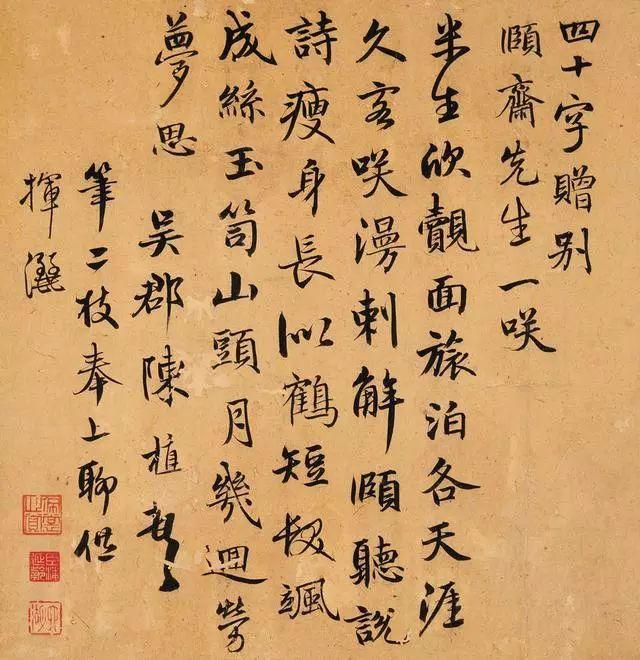 四十字贈别
頤齋先生一咲
半生欣覿面旅泊各天涯
久客咲漫刺解頤聽說
詩瘦身長似鶴短髮颯
成絲玉笥山頭月幾迴勞
夢思 吳郡陳植
筆二枝奉上聊供
揮灑